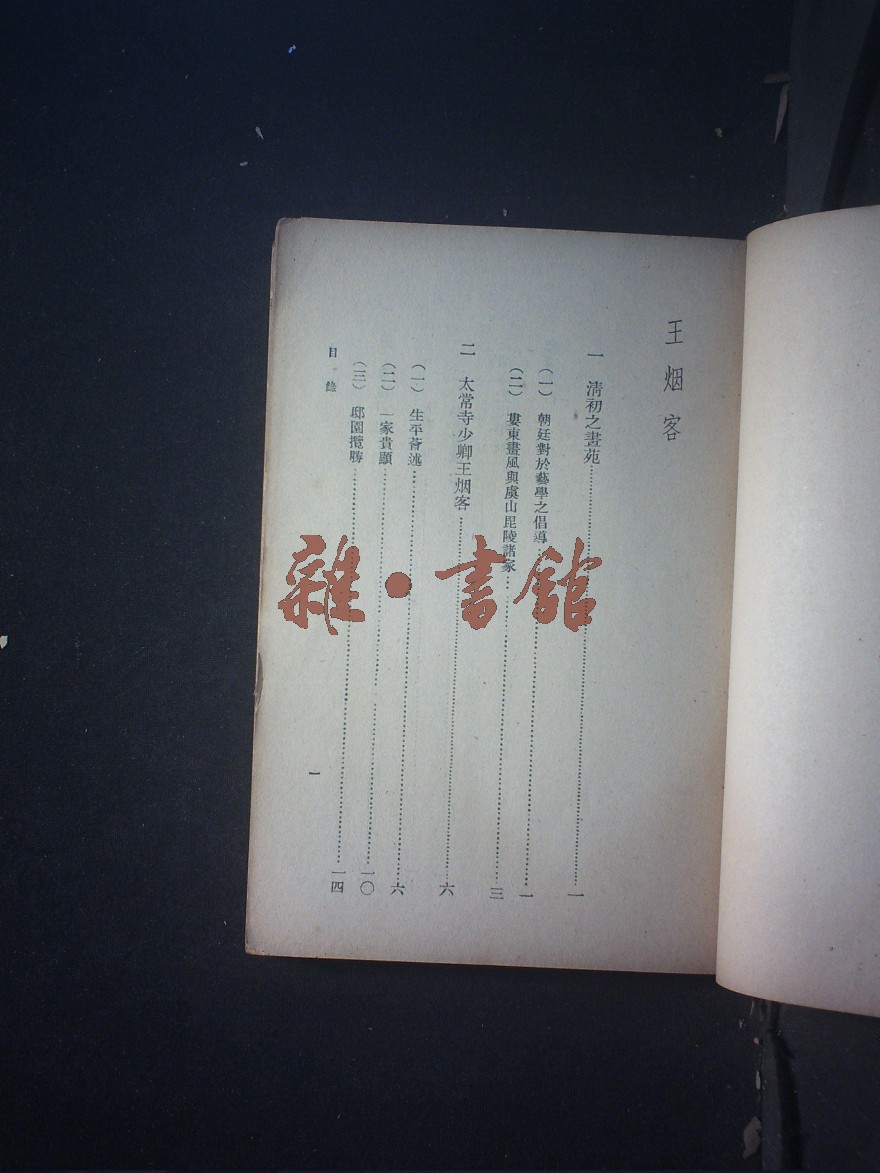 王烟客
一 清初之畫苑……一
(一) 朝廷對於藝學之倡導……一
(二) 婁東畫風與虞山毘陵諸家……三
二 太常寺少卿王烟客……六
(一) 生平薈述……六
(二) 一家貴顯……一〇
(三) 邸園攬勝……一四
目錄
一
雜·書館